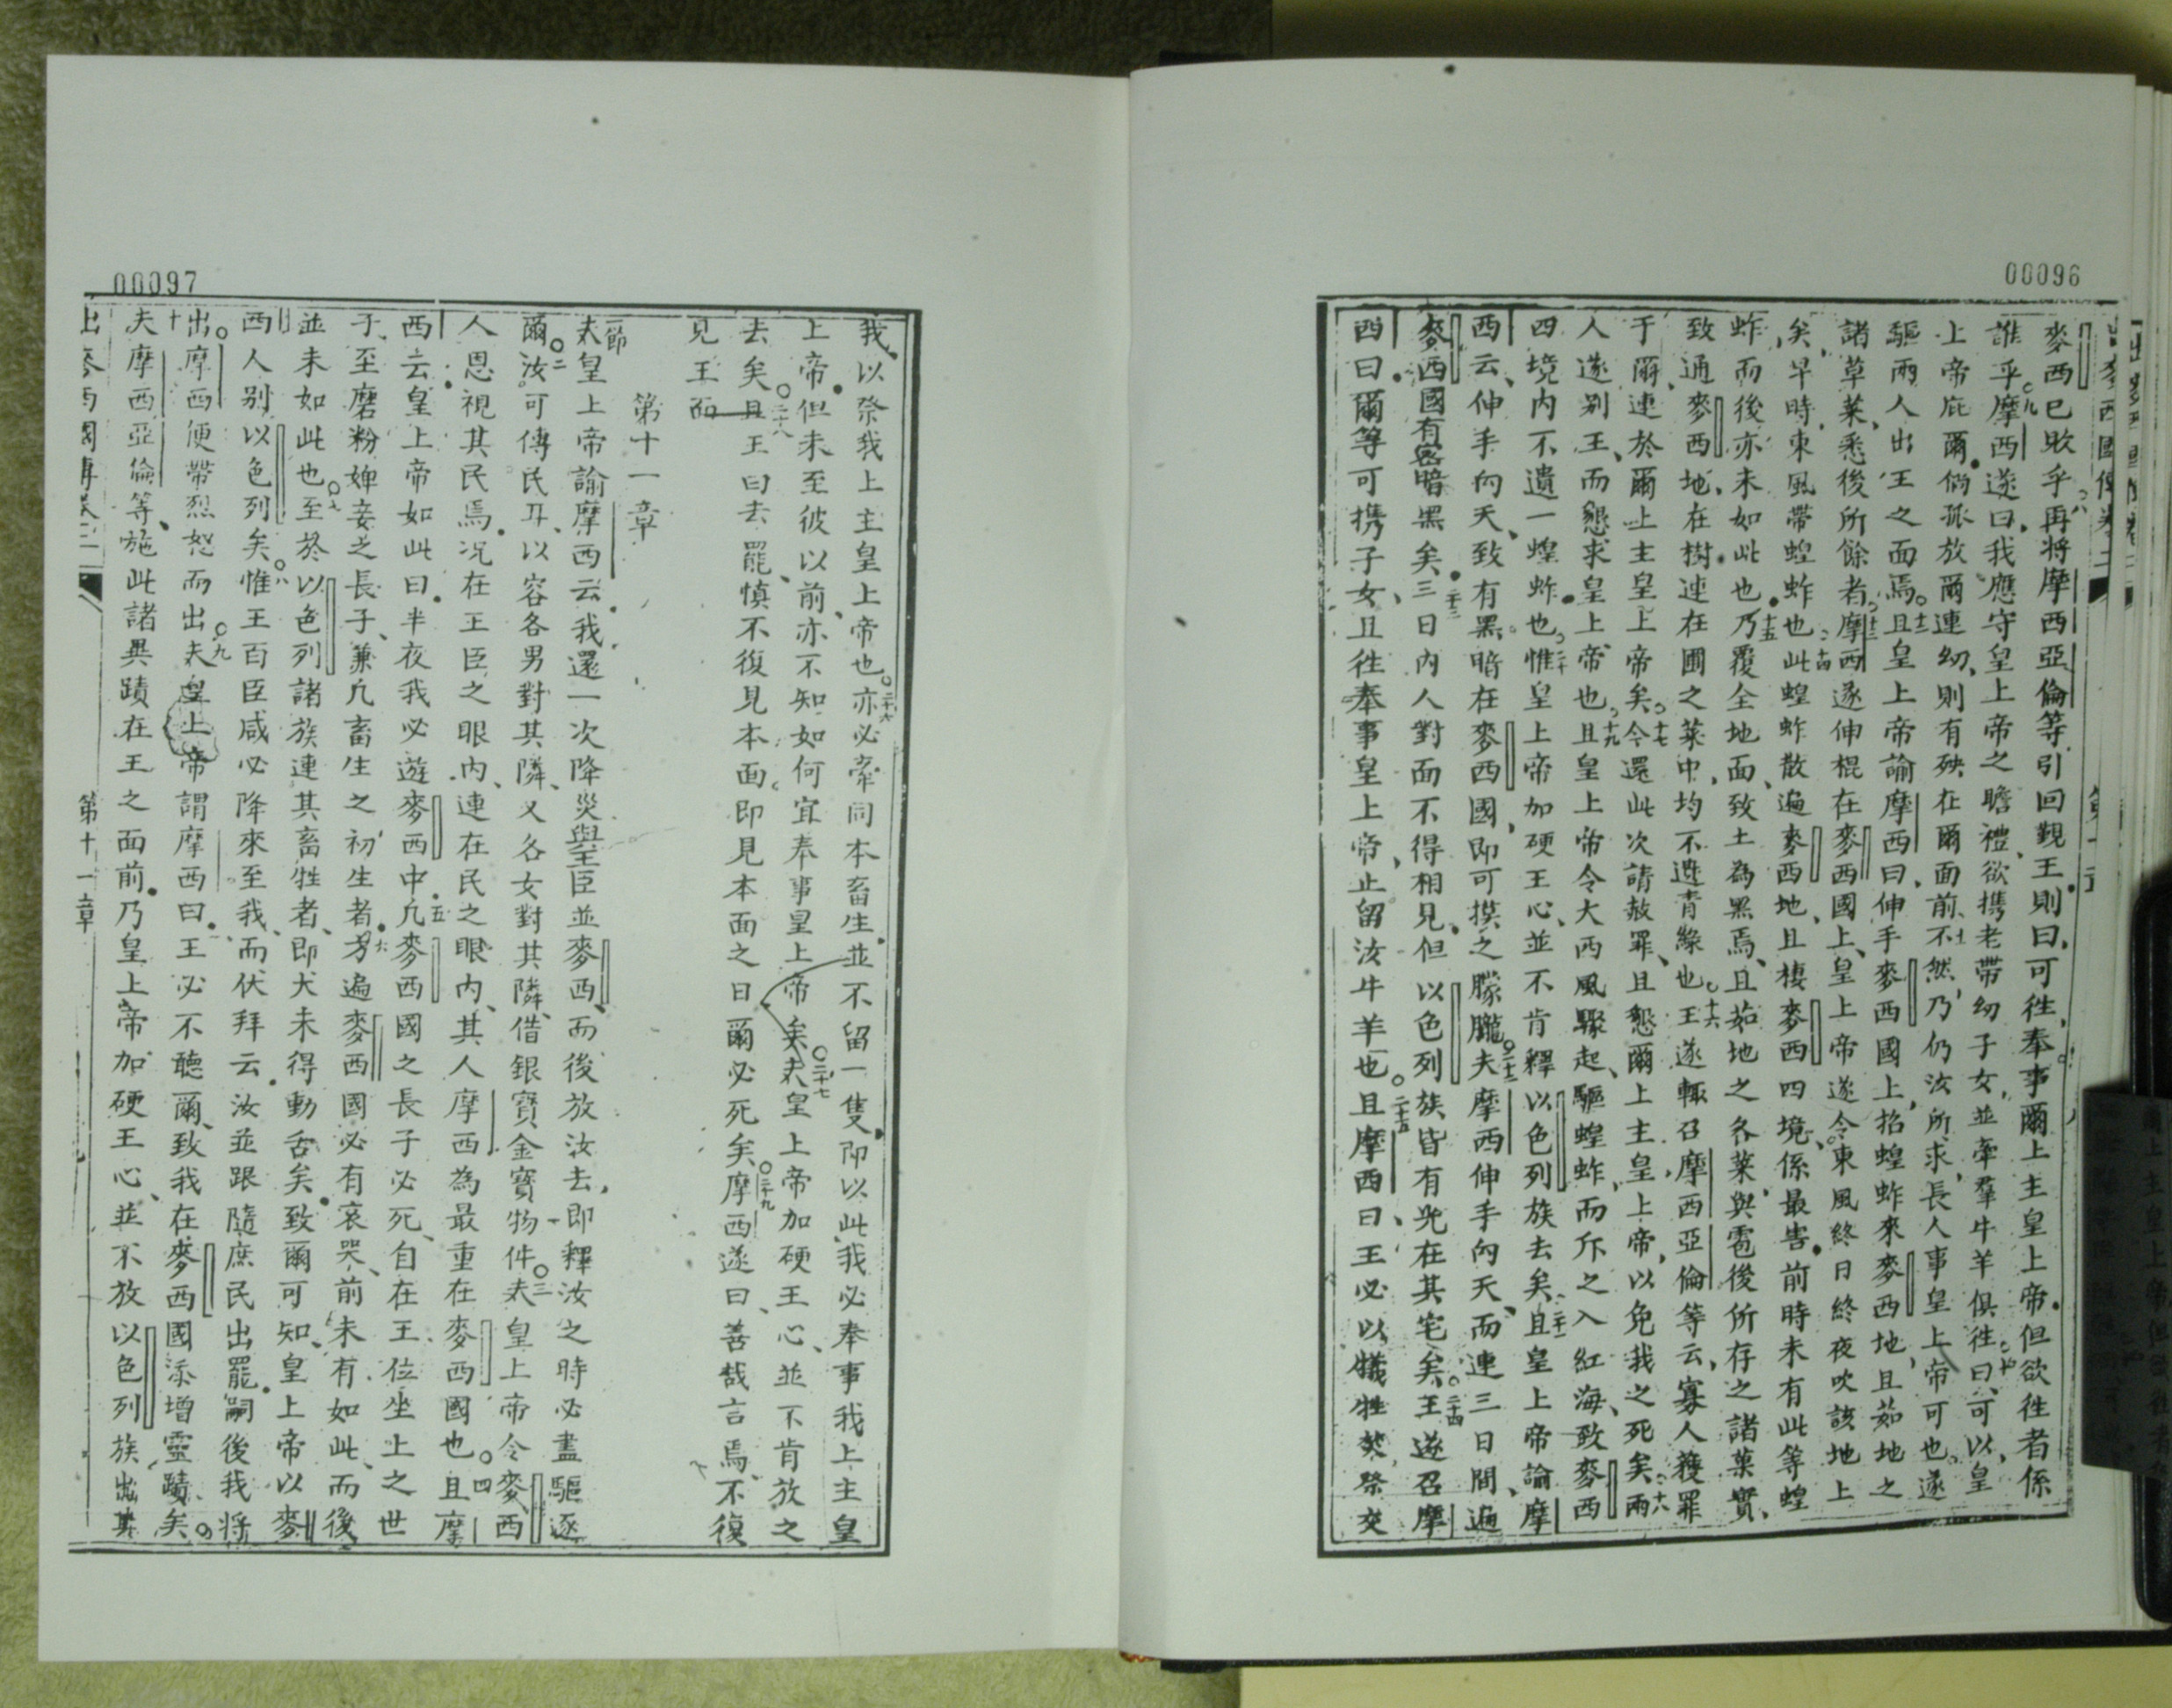 00096
麥西已敗乎八再將摩西亞倫等引回覲王則曰可徃奉事爾上主皇上帝但欲徃者係
誰乎九摩西遂曰我應守皇上帝之瞻禮欲携老帶幼子女並牽羣牛羊俱徃十曰可以皇
上帝庇爾倘孤放爾連幼則有殃在爾面前十一不然乃仍汝所求長人事皇上帝可也遂
驅兩人出王之面焉十二且皇上帝諭摩西曰伸手麥西國上招蝗蚱來麥西地且茹地之
諸草菜悉後所餘者十三摩西遂伸棍在麥西國上皇上帝遂令東風終日終夜吹該地上
矣早時東風帶蝗蚱也十四此蝗蚱散遍麥西地且棲麥西四境係最害前時未有此等蝗
蚱而後亦未如此也十五乃覆全地面致土為黑焉且茹地之各菜與雹後所存之諸菓實
致通麥西地在樹連在圃之菜中均不遺青綠也十六王遂輙召摩西亞倫等云寡人獲罪
于爾連於爾上主皇上帝矣十七今還此次請赦罪且懇爾上主皇上帝以免我之死矣十八兩
人遂别王而懇求皇上帝也十九且皇上帝令大西風驟起驅蝗蚱而斥之入紅海致麥西
四境内不遺一蝗蚱也二十惟皇上帝加硬王心並不肯釋以色列族去矣二十一且皇上帝諭摩
西云伸手向天致有黑暗在麥西國即可摸之朦朧二十二夫摩西伸手向天而連三日間遍
麥西國有密暗黑矣二十三三日内人對面不得相見但以色列族皆有光在其宅矣二十四王遂召摩
西曰爾等可携子女且徃奉事皇上帝止留汝牛羊也二十五且摩西曰王必以犠牲焚祭交
00097
我以祭我上主皇上帝也二十六亦必牽同本畜生並不留一隻即以此我必奉事我上主皇
上帝但未至彼以前亦不知如何宜奉事皇上帝矣二十七夫皇上帝加硬王心並不肯放之
去矣二十八且王曰去罷慎不復見本面即見本面之日爾必死矣二十九摩西遂曰善哉言焉不復
見王面
第十一章
一節夫皇上帝諭摩西云我還一次降災與王臣並麥西而後放汝去即釋汝之時必盡驅逐
爾二汝可傳民耳以容各男對其隣又各女對其隣借銀寶金寶物件三夫皇上帝令麥西
人恩視其民焉况在王臣之眼内連在民之眼内其人摩西為最重在麥西國也四且摩
西云皇上帝如此曰半夜我必遊麥西中五凡麥西國之長子必死自在王位坐上之世
子至磨粉婢妾之長子兼凡畜生之初生者六另遍麥西國必有哀哭前未有如此而後
並未如此也七至於以色列諸族連其畜牲者即犬未得動舌矣致爾可知皇上帝以麥
西人别以色列矣八惟王百臣咸必降來至我而伏拜云汝並跟隨庶民出罷嗣後我將
出摩西便帶烈怒而出九夫皇上帝謂摩西曰王必不聽爾致我在麥西國添增靈蹟矣
十夫摩西亞倫等施此諸異蹟在王之面前乃皇上帝加硬王心並不放以色列族出其
出麥西國傳卷二 第十一章